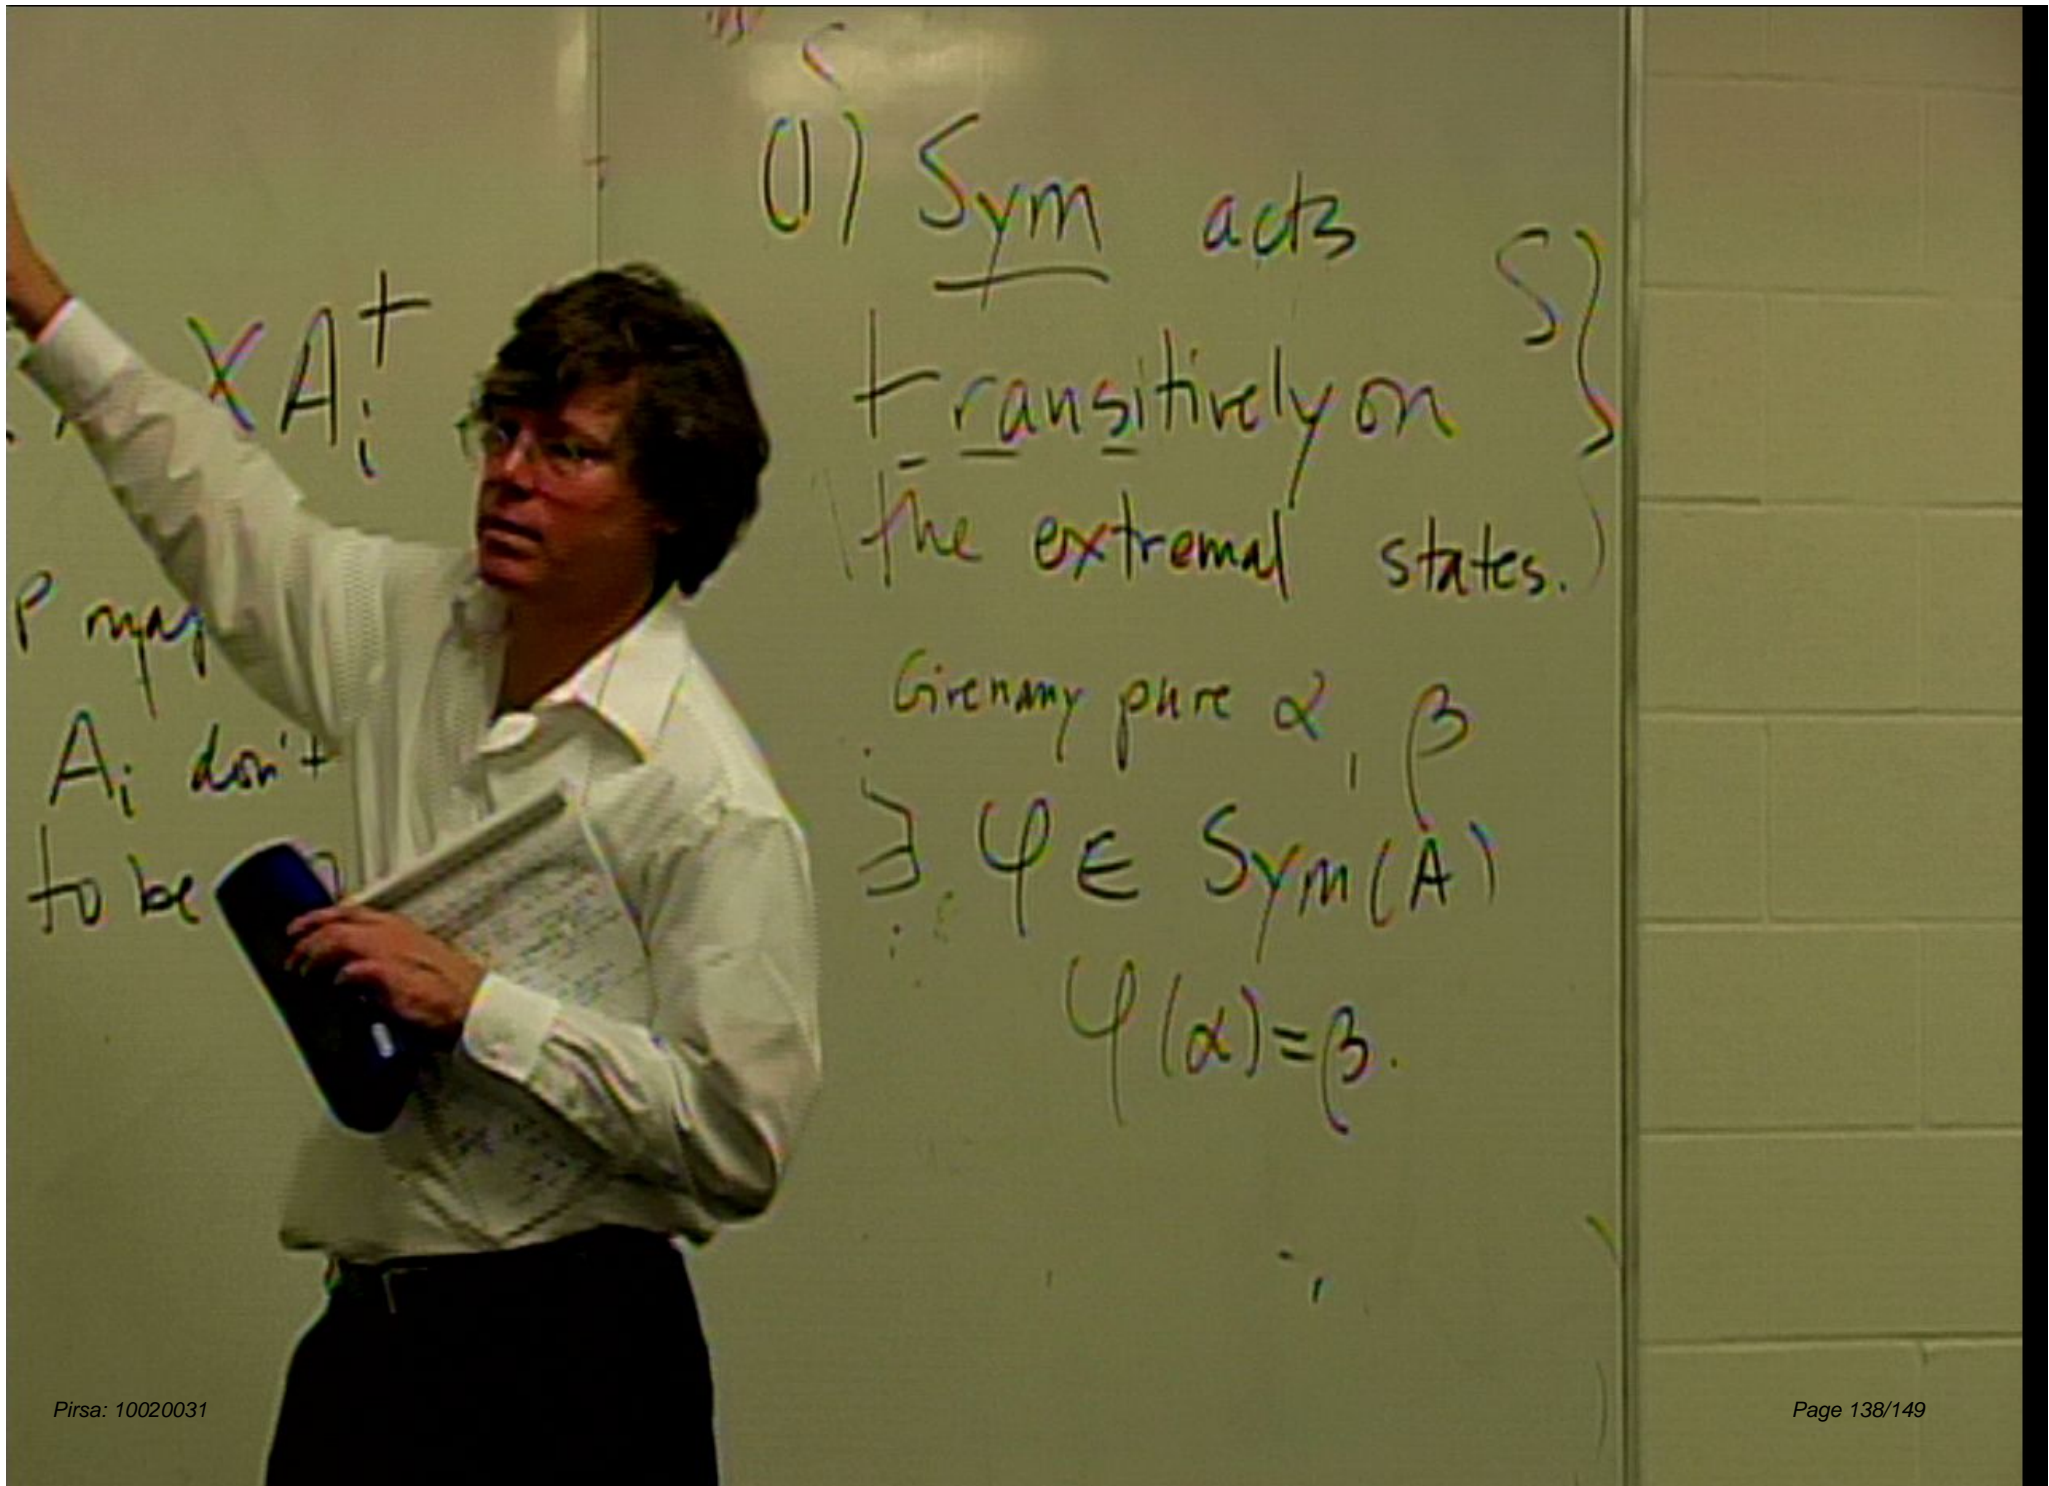 X A_i^†
P may
A_i don't
to be
0) Sym acts
transitively on
(the extremal states.)
Given any pure α, β
∃ φ ∈ Sym(A)
φ(α)=β.
Pirsa: 10020031
Page 138/149